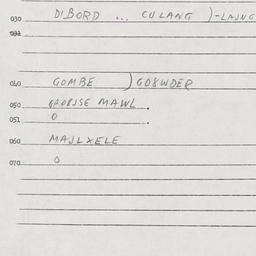 030 DIBORD ... CULANG )-LAJNG
032
040 GOMBE )GO8WDER
050 GROBJSE MAWL.
051 0 .
060 MAJLXELE
070 0